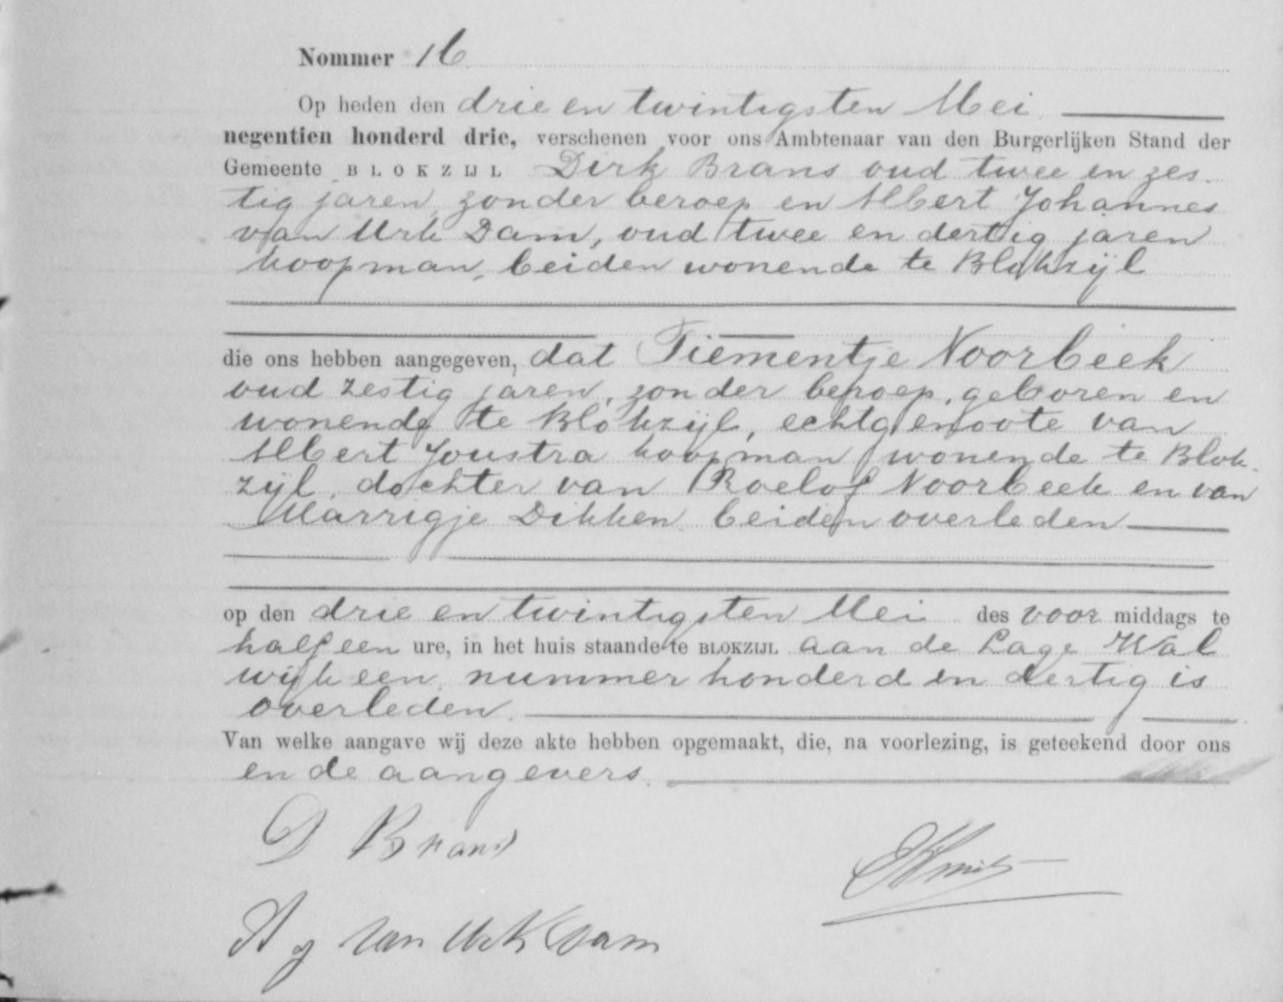 Nommer 16
Op heden den drie en twintigsten Mei
negentien honderd drie, verschenen voor ons Ambtenaar van den Burgerlijken Stand der
Gemeente BLOKZIJL Dirk Brans oud twee en zes-
tig jaren, zonder beroep en Albert Johannes
van Urk Dam, oud twee en dertig jaren
koopman, beiden wonende te Blokzijl
die ons hebben aangegeven, dat Tiementje Noorbeek
oud zestig jaren, zonder beroep, geboren en
wonende te Blokzijl, echtgenoote van
Albert Joustra koopman wonende te Blok-
zijl, dochter van Roelof Noorbeek en van
Marrigje Dikken beiden overleden
op den drie en twintigsten Mei des voor middags te
half een ure, in het huis staande te BLOKZIJL aan de Lage Wal
wijk een, nummer honderd en dertig is
overleden.
Van welke aangave wij deze akte hebben opgemaakt, die, na voorlezing, is geteekend door ons
en de aangevers.
D Brans
A J van Urk Dam